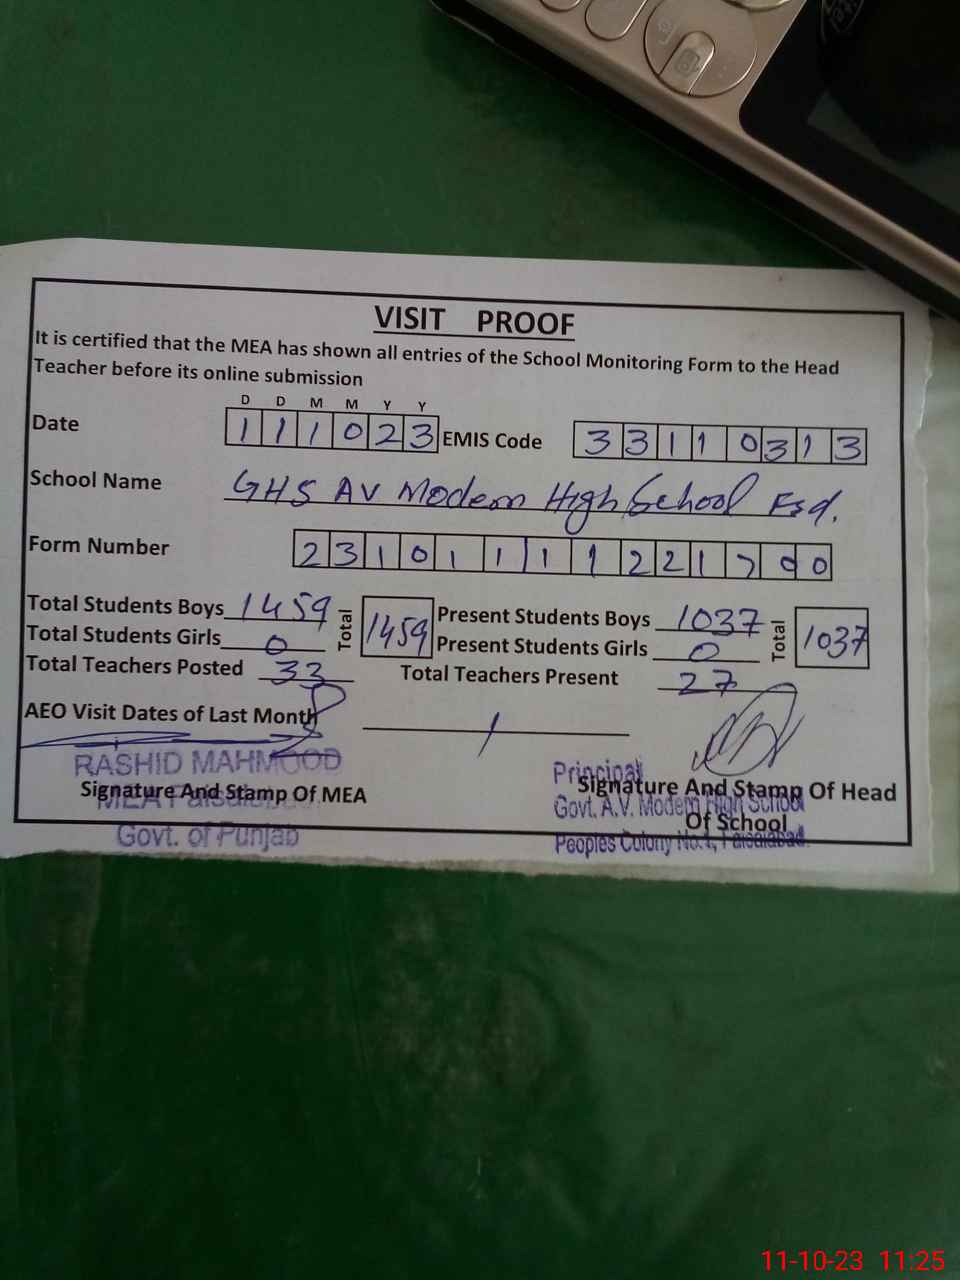 VISIT PROOF
It is certified that the MEA has shown all entries of the School Monitoring Form to the Head
Teacher before its online submission
D D M M Y Y
Date 111023 EMIS Code 33110313
School Name GHS AV Modern High School Fsd.
Form Number 23101111221700
Total Students Boys 1459 Total 1459 Present Students Boys 1037 Total 1037
Total Students Girls 0 Present Students Girls 0
Total Teachers Posted 33 Total Teachers Present 27
AEO Visit Dates of Last Month /
RASHID MAHMOOD
MEA Faisalabad
Govt. of Punjab
Signature And Stamp Of MEA
Principal
Govt. A.V. Modern High School
Peoples Colony No.1, Faisalabad.
Signature And Stamp Of Head
Of School
11-10-23 11:25